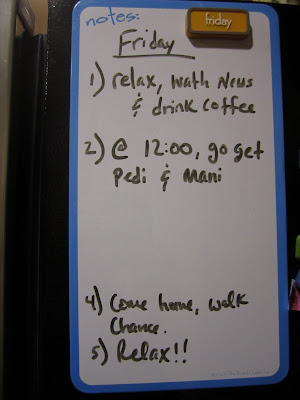 notes:
friday
Friday
1) relax, wath News
& drink coffee
2) @ 12:00, go get
Pedi & Mani
4) Come home, walk
Chance.
5) Relax!!